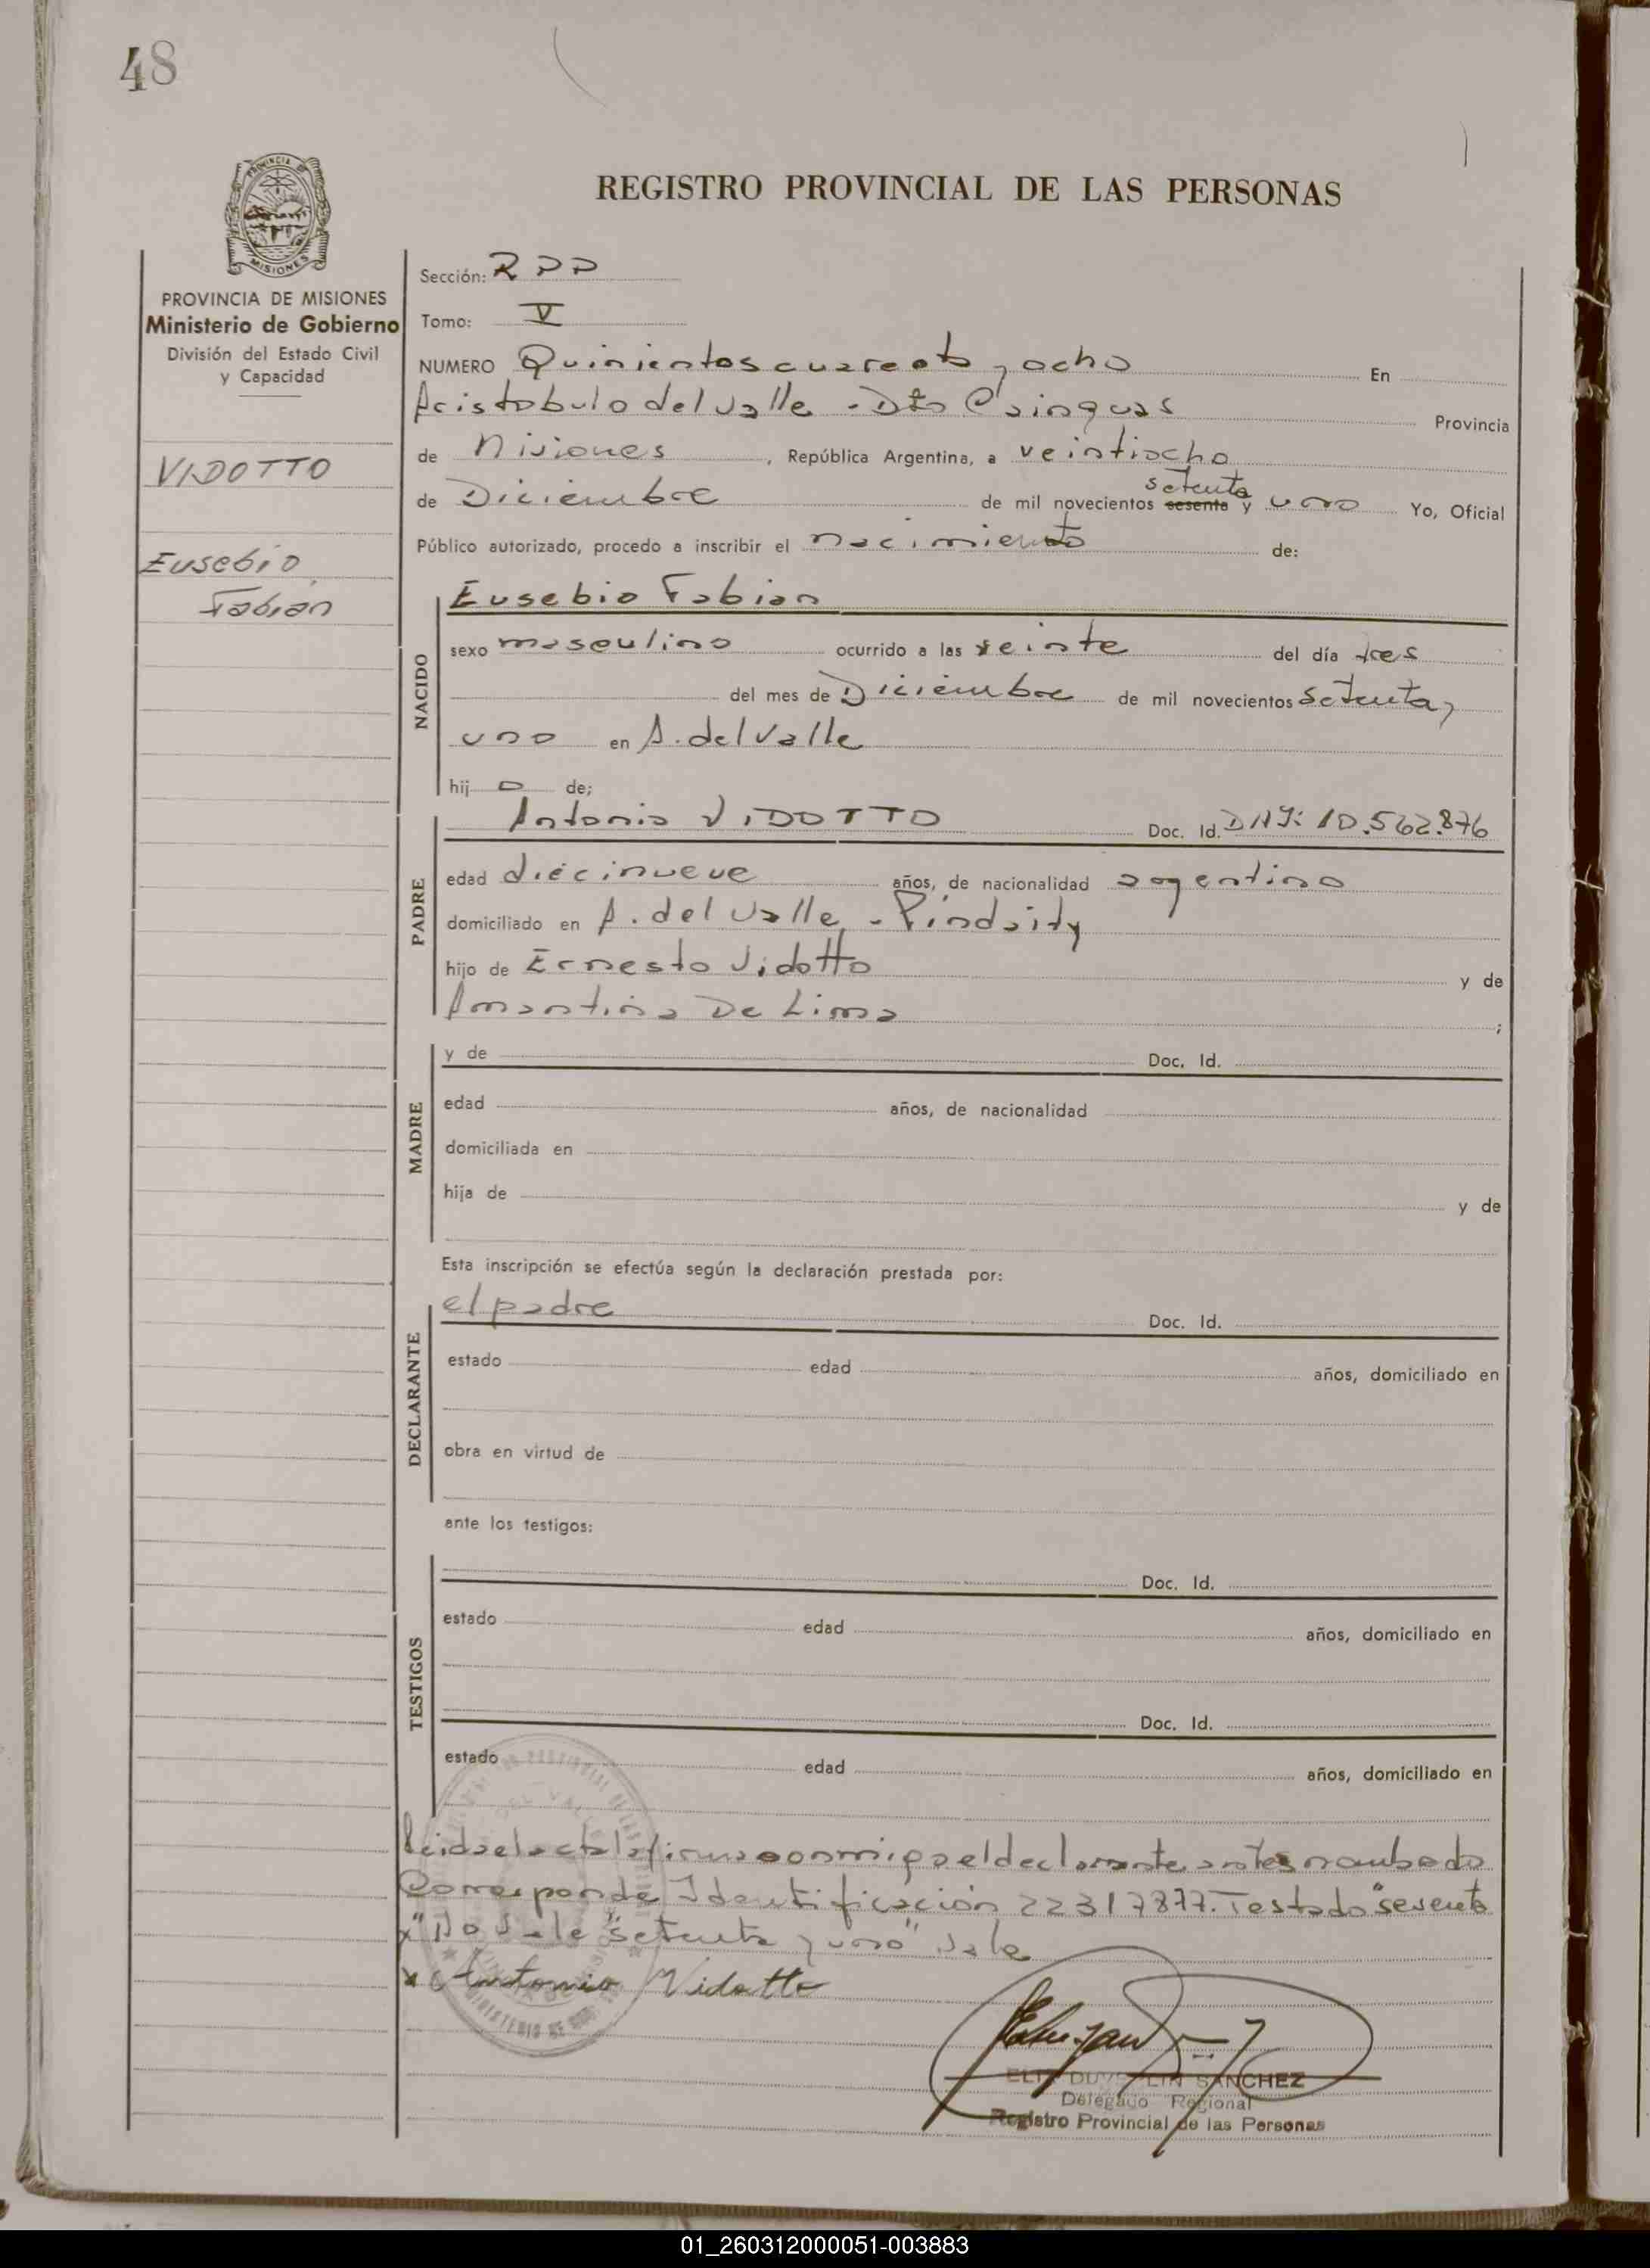 48
PROVINCIA DE
MISIONES
REGISTRO PROVINCIAL DE LAS PERSONAS
PROVINCIA DE MISIONES
Ministerio de Gobierno
División del Estado Civil
y Capacidad
VIDOTTO
Eusebio
Fabián
Sección: RDD
Tomo: V
NUMERO Quinientos cuarenta y ocho En
Aristobulo del Valle - Dto Cainguas Provincia
de Misiones, República Argentina, a veintiocho
setenta
de Diciembre de mil novecientos sesenta y uno Yo, Oficial
Público autorizado, procedo a inscribir el nacimiento de:
NACIDO
Eusebio Fabian
sexo masculino ocurrido a las veinte del día tres
del mes de Diciembre de mil novecientos setenta y
uno en A. del Valle
hij o de;
PADRE
Antonio VIDOTTO Doc. Id. DNI: 10.562.876
edad diecinueve años, de nacionalidad argentino
domiciliado en A. del Valle - Pindaity
hijo de Ernesto Vidotto y de
Amantina De Lima ;
MADRE
y de Doc. Id.
edad años, de nacionalidad
domiciliada en
hija de y de
Esta inscripción se efectúa según la declaración prestada por:
DECLARANTE
el padre Doc. Id.
estado edad años, domiciliado en
obra en virtud de
ante los testigos:
TESTIGOS
Doc. Id.
estado edad años, domiciliado en
Doc. Id.
estado edad años, domiciliado en
Leida el acta la firma conmigo el declarante antes nombrado
Corresponde Identificación 22317877. Testado "sesenta
y" No vale "setenta y uno" Vale
x Antonio Vidotto
SANCHEZ
Delegado Regional
Registro Provincial de las Personas
01_260312000051-003883